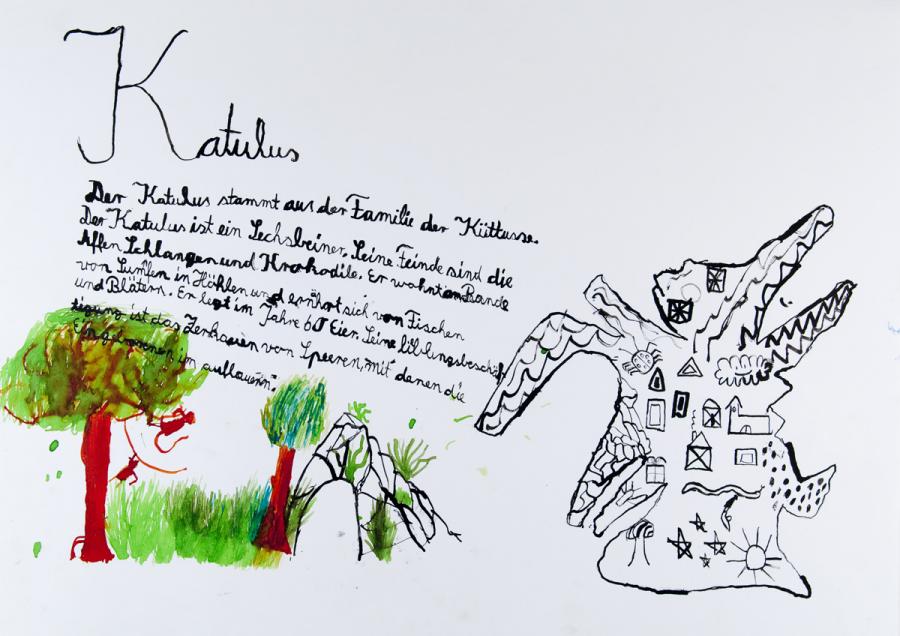 Katulus
Der Katulus stammt aus der Familie der Küttusse.
Der Katulus ist ein Sechsbeiner. Seine Feinde sind die
Affen Schlangen und Krokodile. Er wohnt am Rande
von Sümfen in Höhlen und ernährt sich von Fischen
und Blätern. Er legt im Jahre 60 Eier. Seine liblungsbeschäf
tigung ist das Zerkauen von Speeren, mit denen die
Eingeborenen im auflauern.